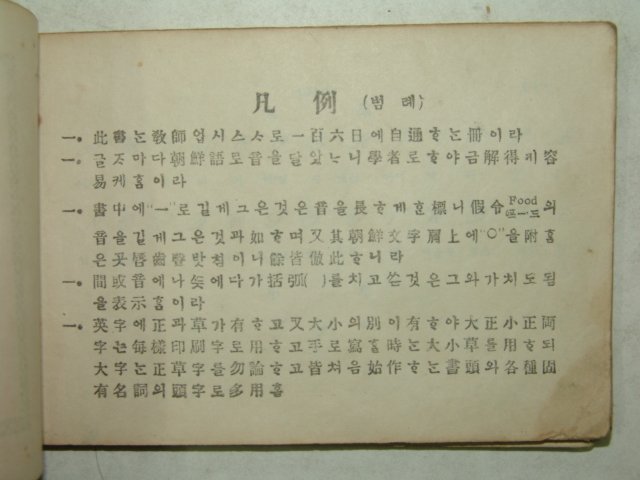 凡 例 (범 례)
一. 此書는 敎師업시 스스로 一百六日에 自通ᄒᆞ는 冊이라
一. 글ᄌᆞ마다 朝鮮語로 音을 달앗느니 學者로 ᄒᆞ야금 解得게 容
易케 홈이라
一. 書中에 "一"로 길게 그은 것은 音을 長ᄒᆞ게 훈 標니 假令 Food의
音을 길게 그은 것과 如ᄒᆞ며 又 其 朝鮮文字 肩上에 "○"을 附홈
은 唇齒聲밧침이니 餘皆倣此ᄒᆞ니라
一. 間或 音에나 矣에다가 括弧( )를 치고 쓴 것은 그와 가치도 됨
을 表示홈이라
一. 英字에 正과 草가 有ᄒᆞ고 又 大小의 別이 有ᄒᆞ야 大正小正 两
字는 每樣 印刷字로 用ᄒᆞ고 手로 寫홀 時는 大小草를 用ᄒᆞ되
大字는 正草字를 勿論ᄒᆞ고 皆 처음 始作ᄒᆞ는 書頭와 各種 固
有名詞의 頭字로 多用홈